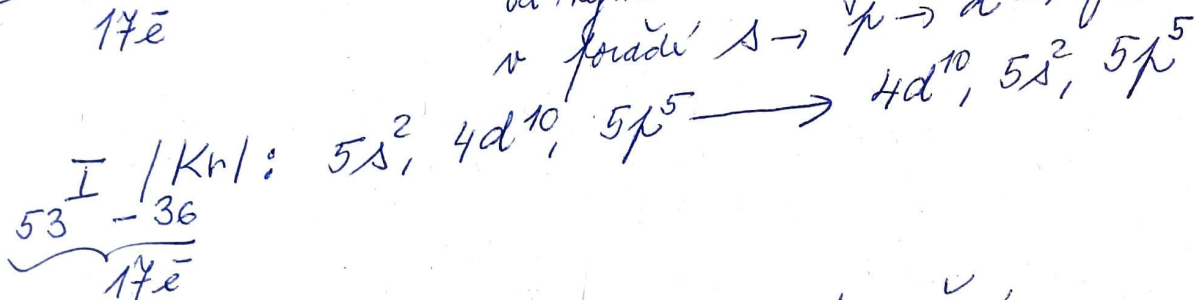 17ē
v pořadí s → p → d
I /Kr/: 5s², 4d¹⁰, 5p⁵ → 4d¹⁰, 5s², 5p⁵
53 - 36
17ē